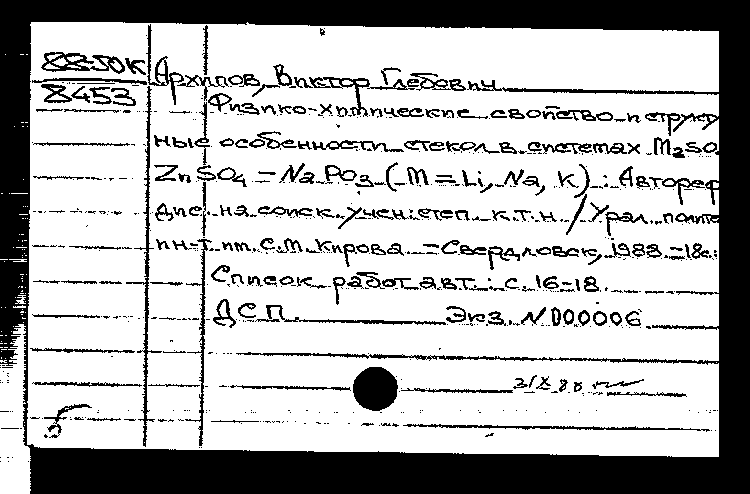 88-50К
8453
Архипов, Виктор Глебович
Физико-химические свойство и структу
ные особенности стекол в системах M₂SO
ZnSO₄ – NaPO₃ (M = Li, Na, K) : Авторef
дис. на соиск. учен. степ. к.т.н. / Урал. полите
ин-т им. С.М. Кирова. – Свердловск, 1988. – 18с.:
Список работ авт.: с. 16–18.
ДСП. Экз. N 000006
5